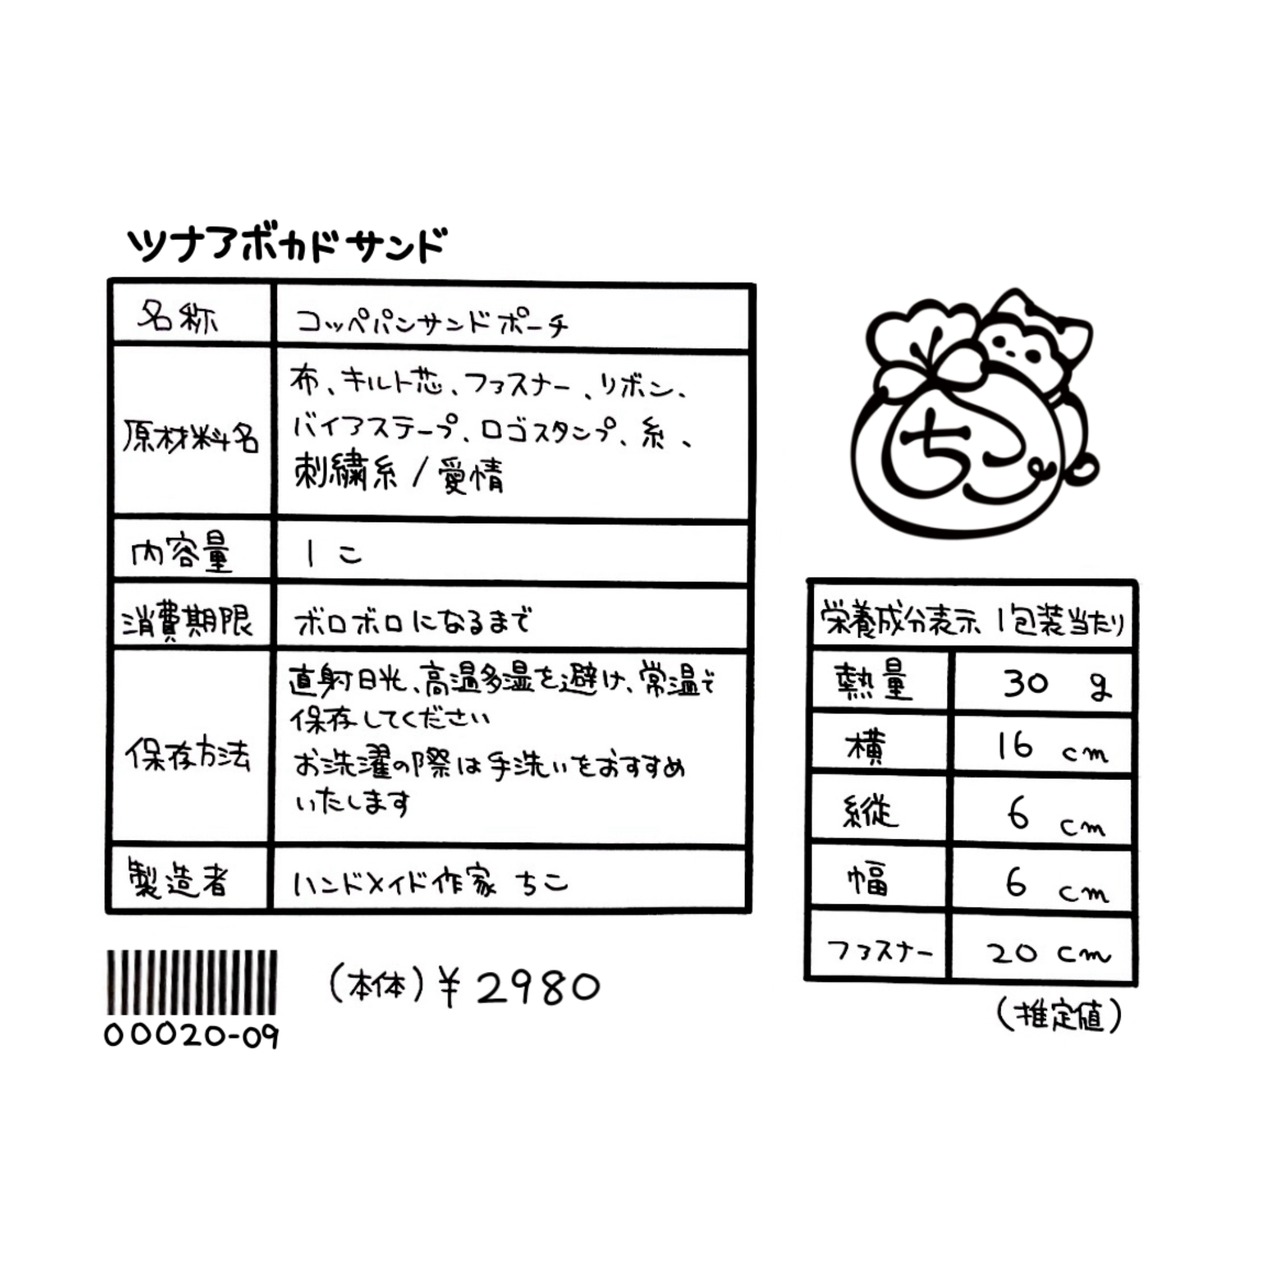 ツナアボカドサンド
名称 コッペパンサンドポーチ
原材料名 布、キルト芯、ファスナー、リボン、
バイアステープ、ロゴスタンプ、糸、
刺繍糸/愛情
内容量 1こ
消費期限 ボロボロになるまで
保存方法 直射日光、高温多湿を避け、常温で
保存してください
お洗濯の際は手洗いをおすすめ
いたします
製造者 ハンドメイド作家 ちこ
00020-09
(本体)¥2980
ちこ
栄養成分表示 1包装当たり
熱量 30 g
横 16 cm
縦 6 cm
幅 6 cm
ファスナー 20 cm
(推定値)